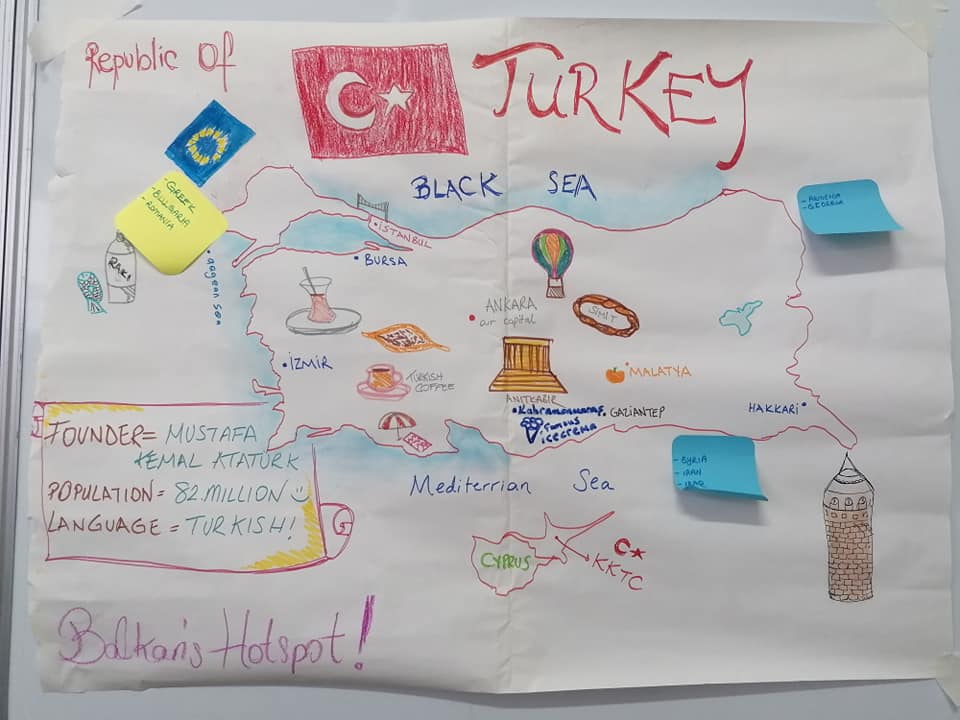 Republic Of
TURKEY
BLACK SEA
- GREEK
- BULGARIA
- ROMANIA
- ARMENIA
- GEORGIA
RAKI
aegean sea
ISTANBUL
BURSA
ANKARA
our capital
SIMIT
İZMİR
TURKISH
COFFEE
ANITKABİR
MALATYA
Kahramanmaraş
famous
icecrema
GAZİANTEP
HAKKARİ
FOUNDER= MUSTAFA
KEMAL ATATÜRK
POPULATION = 82.MILLION
LANGUAGE = TURKISH!
Mediterrian Sea
- SYRIA
- IRAN
- IRAQ
CYPRUS
KKTC
Balkan's Hotspot!